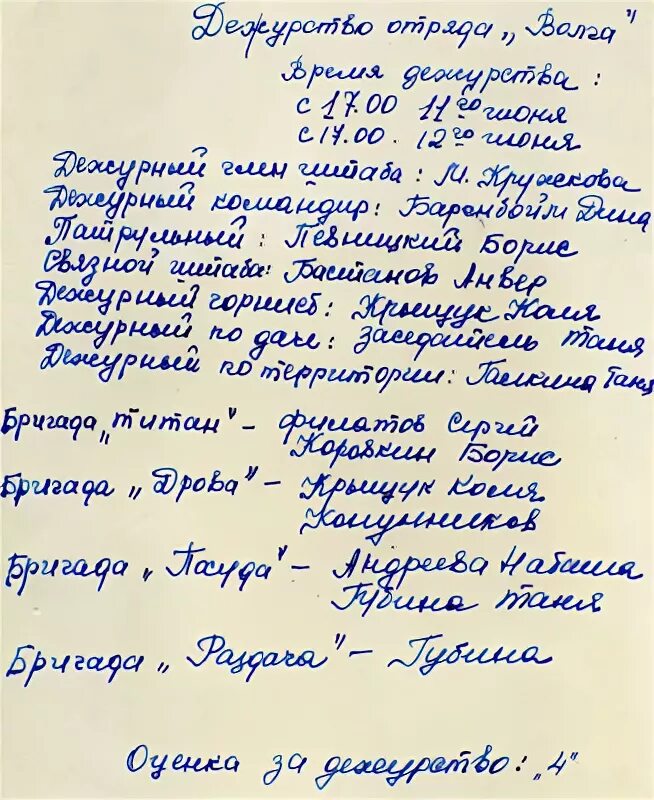 Дежурство отряда „Волга"
Время дежурства:
с 17.00 11го июня
с 17.00. 12го июня
Дежурный член штаба: М. Кружкова
Дежурный командир: Баренбойм Дина
Патрульный: Певницкий Борис
Связной штаба: Бастанов Анвер
Дежурный горнист: Крыщук Коля
Дежурный по даче: Заседатель Таня
Дежурный по территории: Галкина Таня
Бригада „Титан" – Филатов Сергей
Коровкин Борис
Бригада „Дрова" – Крыщук Коля
Бригада „Посуда" – Андреева Наташа
Губина Таня
Бригада „Раздача" – Губина
Оценка за дежурство: „4"